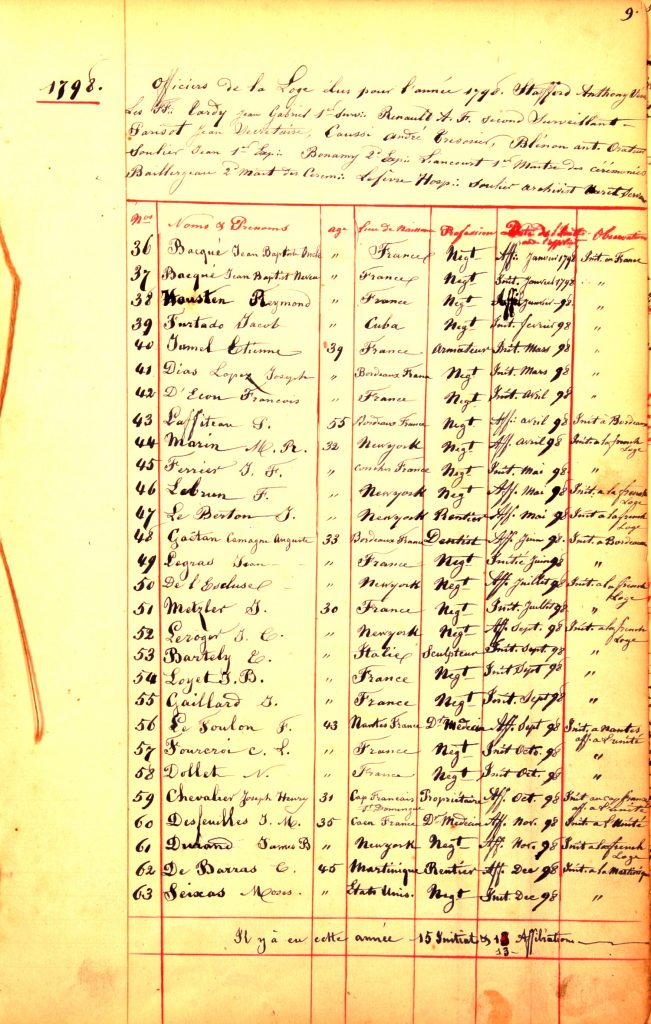 9.
1798.
Officiers de la Loge élus pour l'année 1798. Stafford Anthony Ven
Les FF∴ Tardy Jean Gabriel 1er Surv∴ Renault A. F. Second Surveillant
Parisot Jean Secrétaire, Caussé André Trésorier, Blénon ant Orateur
Soulier Jean 1er Exp∴ Bonamy 2d Exp∴ Liancourt 1er Maitre des cérémonies
Baillergeau 2d Mait des Cérem∴ Lefèvre Hosp∴ Soulier archivist
Nos Noms & Prénoms age Lieu de Naissan Profession Date de l'Initi Observation
36 Bacqué Jean Baptist Oncle " France Negt Aff: Janvier 1798 Init en France
37 Bacqué Jean Baptist Neveu " France Negt Init. Janvier 1798 "
38 Housten Reymond " France Negt Aff. Janvier 98 "
39 Furtado Jacob " Cuba Negt Init. fevrier 98 "
40 Jamel Etienne 39 France Armateur Init. Mars 98 "
41 Dias Lopez Joseph " Bordeaux France Negt Init. Mars 98 "
42 D'Eon Francois " France Negt Init. Avril 98 "
43 Laffiteau S. 55 Bordeaux France Negt Aff: avril 98 Init à Bordeaux
44 Marin M. R. 32 Newyork Negt Aff. Avril 98 Init. a la french Loge
45 Ferrier J. F. " France Negt Init. Mai 98 "
46 Lebrun F. " Newyork Negt Aff. Mai 98 Init. a la french Loge
47 Le Berton J. " Newyork Rentier Aff. Mai 98 Init a la french Loge
48 Gaëtan Camagne Auguste 33 Bordeaux France Dentist Aff Juin 98. Init. a Bordeaux
49 Legras Jean " France Negt Initié Juin 98 "
50 De l'Ecluse " Newyork Negt Aff. Juillet 98 Init. a la french Loge
51 Metzler J. 30 France Negt Init. Juillet 98 "
52 Leroger J. C. " Newyork Negt Aff. Sept. 98 Init. a la french Loge
53 Bartely E. " Italie Sculpteur Init. Sept 98 "
54 Loyet J. B. " France Negt Init Sept 98 "
55 Gaillard J. " France Negt Init. Sept 98 "
56 Le Foulon F. 43 Nantes France Dr Médecin Aff. Sept 98 Init. a Nantes aff. a l'unité
57 Fourcroi C. L. " France Negt Init Octo. 98 "
58 Dollet N. " France Negt Init Oct. 98 "
59 Chevalier Joseph Henry 31 Cap Francais St Domingue Propriétaire Aff. Oct. 98 Init au cap français aff. a l'unité
60 Desfeuilles J. M. 35 Caen France Dr Médecin Aff Nov. 98 Init a l'Unité
61 Durand James B " Newyork Negt Aff. Nov. 98 Init. a la french Loge
62 De Barras C. 45 Martinique Rentier Aff Dec 98 Init a la Martinique
63 Seixas Moses " Etats Unis. Negt Init. Dec 98 "
Il y a eu cette année 15 Initiat & 13 Affiliations
13